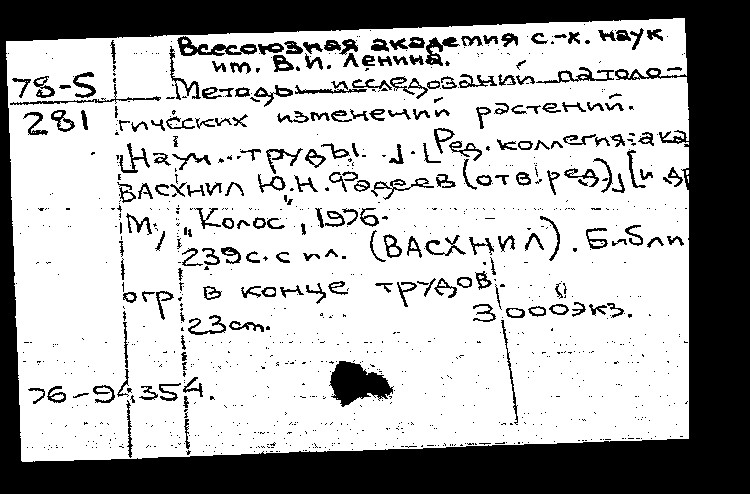 Всесоюзная академия с.-х. наук
им. В.И. Ленина.
78-5 Методы исследований патоло-
281 гических изменений растений.
[Научн. труды...]. [Ред. коллегия: ака
ВАСХНИЛ Ю.Н. Фадеев (отв. ред.), [и др
М., "Колос", 1976.
239с. с ил. (ВАСХНИЛ). Библи
огр. в конце трудов.
23 cm. 3 000 экз.
76-94354.